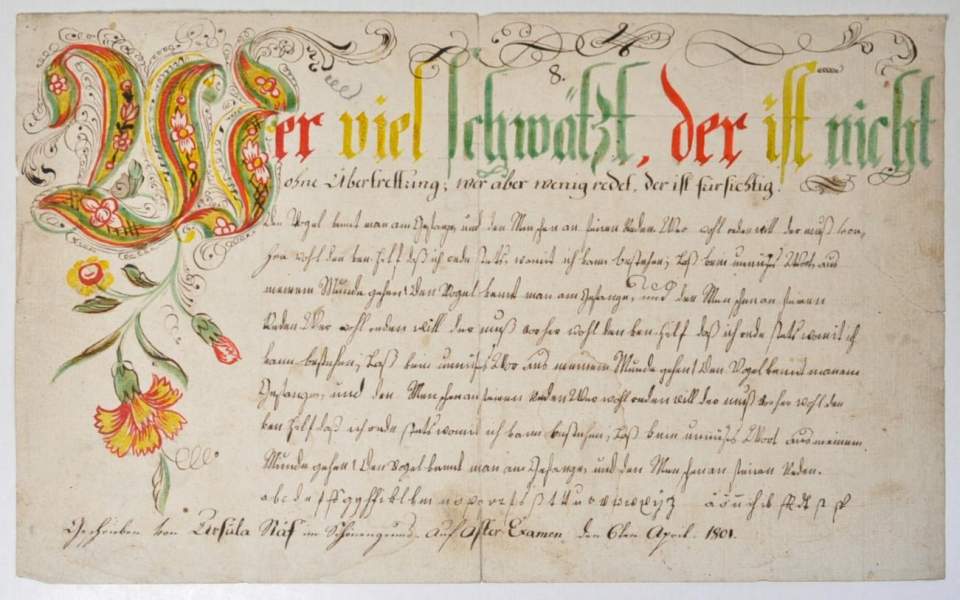 8.
Wer viel schwätzt, der ist nicht
ohne Übertrettung; wer aber wenig redet, der ist fürsichtig.
Den Vogel kennt man am Gesange, und den Menschen an seinen Reden. Wer wohl reden will der muß vor,
her wohl denken. Hilf daß ich rede stets, womit ich kann bestehen; Laß kein unnützs Wort, aus
meinem Munde gehen! Den Vogel kennt man am Gesange, und den Menschen an seinen
Reden. Wer wohl reden will der muß vorher wohl denken. Hilf daß ich rede stets womit ich
kann bestehen; Laß kein unnützs Wo aus meinem Munde gehen! Den Vogel kennt man am
Gesange, und den Menschen an seinen Reden. Wer wohl reden will der muß vorher wohl den
ken. Hilf daß ich rede stets womit ich kann bestehen; Laß kein unnützs Wort aus meinem
Munde gehen! Den Vogel kennt man am Gesange, und den Menschen an seinen Reden.
Geschrieben von Ursula Näf im Schönengrund. Auf Oster Examen, den 6ten April. 1801.